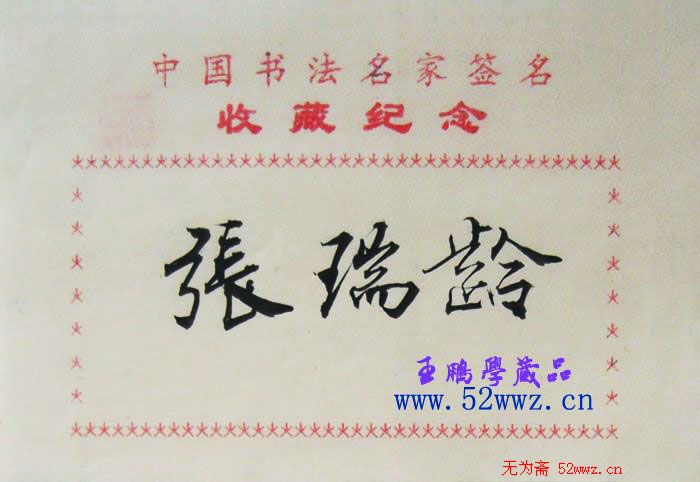 中国书法名家签名
收藏纪念
張瑞龄
王鵬學藏品
www.52wwz.cn
无为斋 52wwz.cn